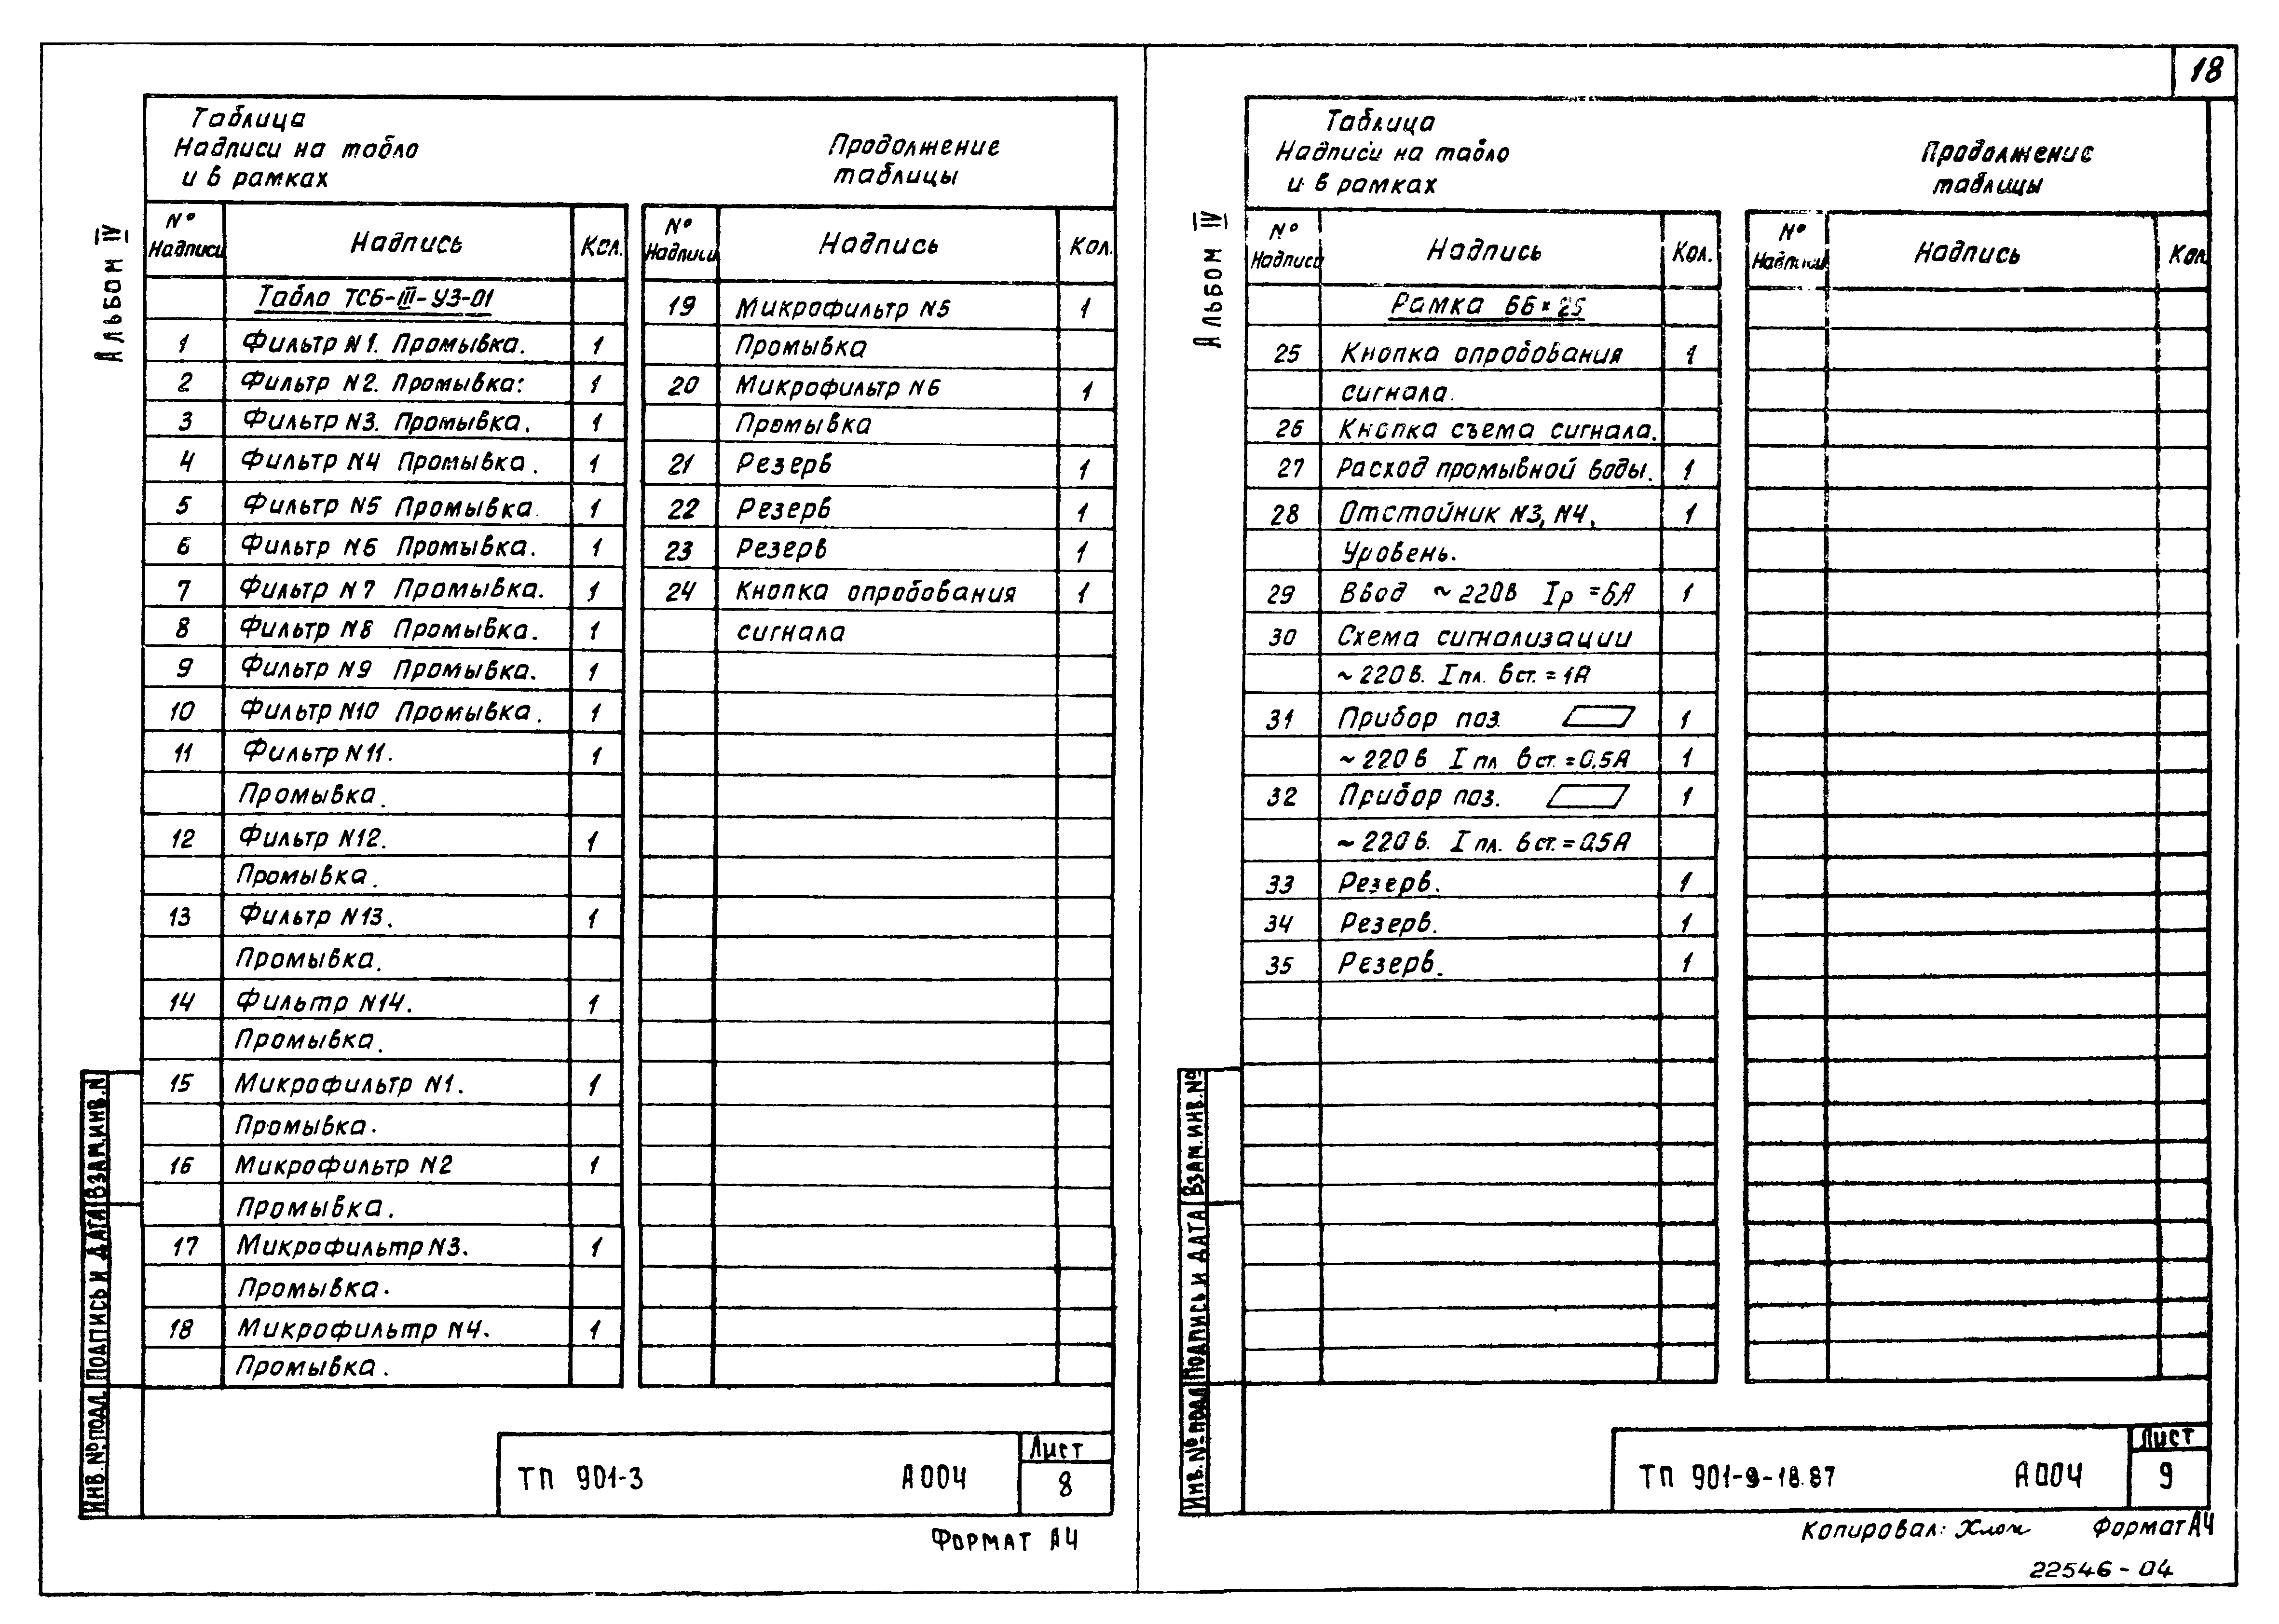 18
Альбом IV
Таблица
Надписи на табло
и в рамках
Продолжение
таблицы
№ Надписи Надпись Кол.
Табло ТСБ-III-УЗ-01
1 Фильтр N1. Промывка. 1
2 Фильтр N2. Промывка. 1
3 Фильтр N3. Промывка. 1
4 Фильтр N4 Промывка. 1
5 Фильтр N5 Промывка. 1
6 Фильтр N6 Промывка. 1
7 Фильтр N7 Промывка. 1
8 Фильтр N8 Промывка. 1
9 Фильтр N9 Промывка. 1
10 Фильтр N10 Промывка. 1
11 Фильтр N11. 1
Промывка.
12 Фильтр N12. 1
Промывка.
13 Фильтр N13. 1
Промывка.
14 Фильтр N14. 1
Промывка.
15 Микрофильтр N1. 1
Промывка.
16 Микрофильтр N2 1
Промывка.
17 Микрофильтр N3. 1
Промывка.
18 Микрофильтр N4. 1
Промывка.
№ Надписи Надпись Кол.
19 Микрофильтр N5 1
Промывка
20 Микрофильтр N6 1
Промывка
21 Резерв 1
22 Резерв 1
23 Резерв 1
24 Кнопка опробования 1
сигнала
ИНВ. № ПОДЛ. ПОДПИСЬ И ДАТА ВЗАМ.ИНВ.N
ТП 901-3 А004
Лист
8
Формат А4
Альбом IV
Таблица
Надписи на табло
и в рамках
Продолжение
таблицы
№ Надписи Надпись Кол.
Рамка 66×25
25 Кнопка опробования 1
сигнала.
26 Кнопка съема сигнала.
27 Расход промывной воды. 1
28 Отстойник N3, N4. 1
Уровень.
29 Ввод ~220В Iр=6А 1
30 Схема сигнализации
~220В. I пл. вст.=1А
31 Прибор поз. 1
~220В I пл вст.=0.5А 1
32 Прибор поз. 1
~220В. I пл. вст.=0.5А
33 Резерв. 1
34 Резерв. 1
35 Резерв. 1
№ Надписи Надпись Кол.
ИНВ. № ПОДЛ ПОДПИСЬ И ДАТА ВЗАМ.ИНВ.№
ТП 901-9-18.87 А004
Лист
9
Копировал: Хлон Формат А4
22546-04